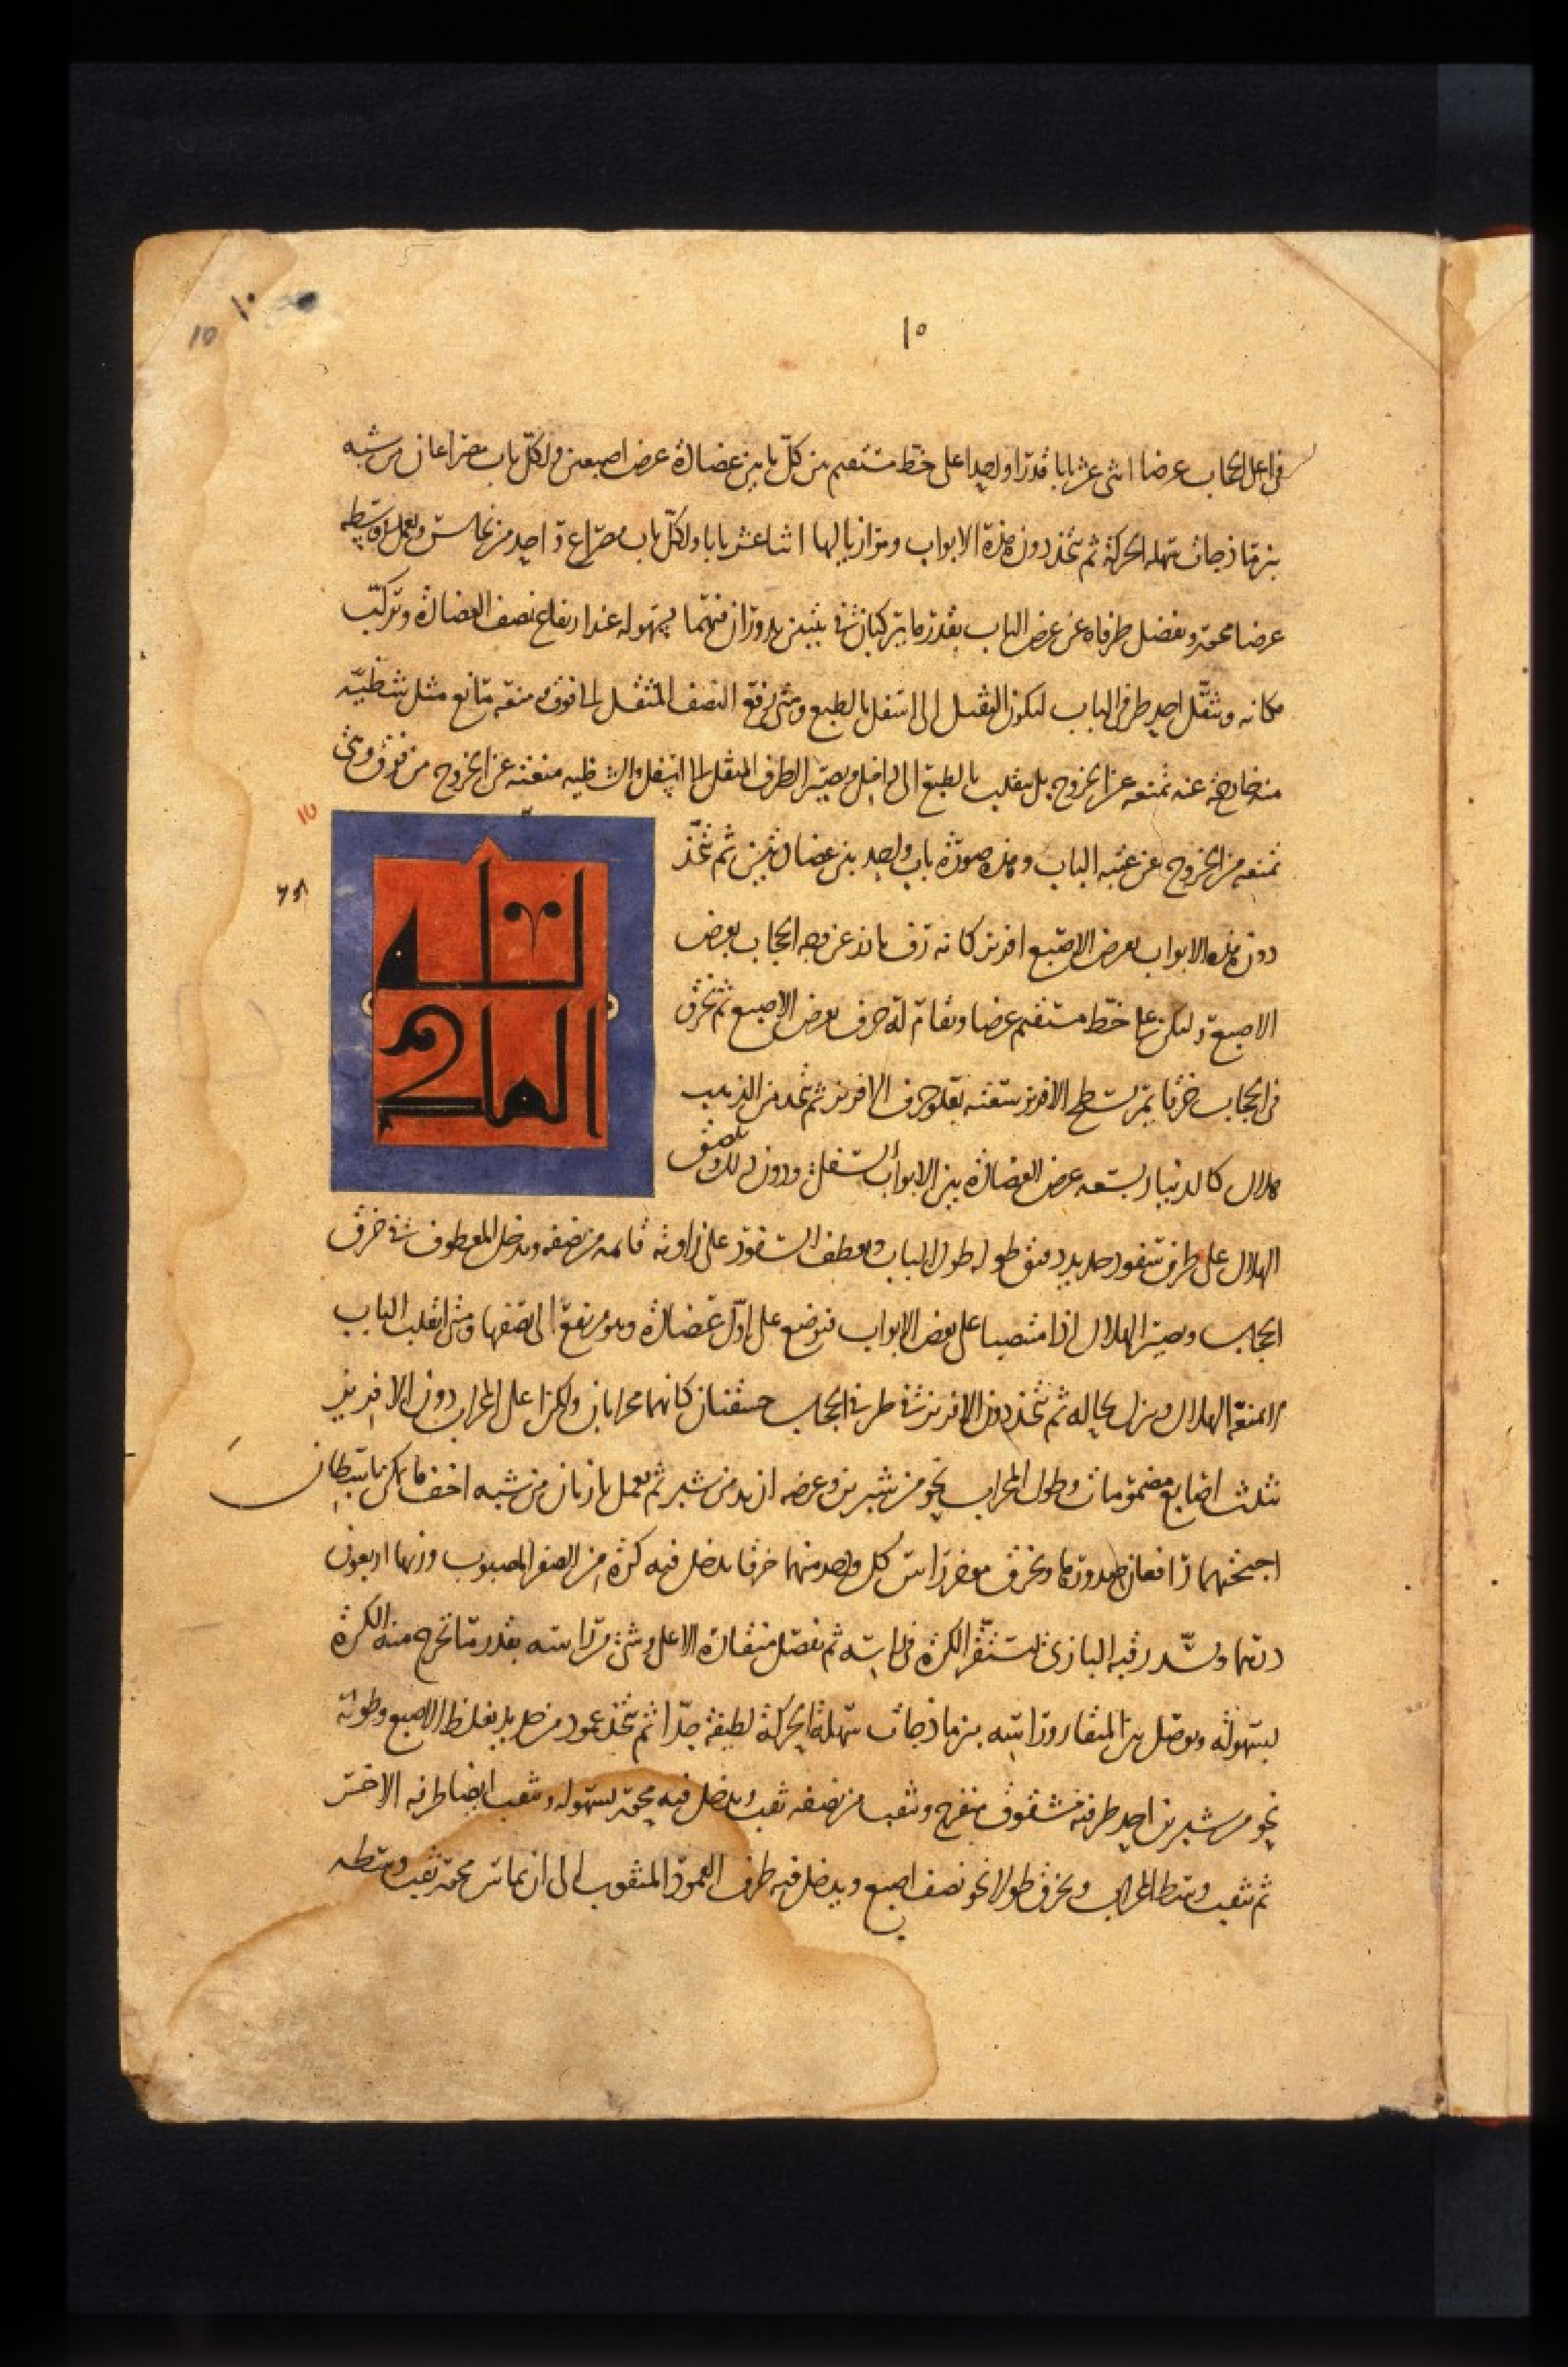 ١٠
10
١٠
في اعلى الحجاب عرضا اثنى عشر بابا قدرا واحدا على خط مستقيم من كلّ بابين عضادة عرض اصبعين ولكلّ باب مصراعان من شبه
بنرماذجات سهلة الحركة ثم تتخذ دون هذه الابواب وموازيا لها اثنا عشر بابا ولكلّ باب مصراع واحد من نحاس ويعمل في وسطه
عرضا محور ويفضل طرفاه عن عرض الباب بقدر ما يتركبان في بيتين يدوران فيهما بسهولة عند ارتفاع نصف العضادة وتركّب
مكانه ويثقّل احد طرفي الباب ليكون الثقيل الى اسفل بالطبع ومتى رفع النصف المثقل الى فوق منعه مانع مثل شظيّة
منه خارجة عنه تمنعه عن الخروج بل ينقلب بالطبع الى داخل ويصير الطرف المثقل الى اسفل والشظيه ممنعته عن الخروج من فوق ومتى
تمنعه من الخروج عن عتبة الباب وهذه صورة باب واحد بين عضادتين ثم تتخذ
دون هذه الابواب بعرض الاصبع افريز كانه رف بارز عن وجه الحجاب بعرض
الاصبع وليكن على خطّ مستقيم عرضا ويقام له حرف بعرض الاصبع ثم يخرق
في الحجاب خرقا يمر بسطح الافريز سعته يعلو حرف الافريز ثم يتخذ من الذهب
هلال كالدينار بسعة عرض العضادة بين الابواب السفلى ودون ذلك ويلصق
الهلال على طرف سفود حديد دقيق طوله طول الباب ويعطف السفود على زاوية قائمه من نصفه ويدخل المعطوف في خرق
الحجاب ويصير الهلال اذا منتصبا على بعض الابواب فيوضع على اوّل عضادة وهو يرتفع الى نصفها ومتى انقلب الباب
لا يمنعه الهلال ويزل بحاله ثم تتخذ دون الافريز في طرفي الحجاب حنيتان كانهما محرابان وليكن اعلى المحراب دون الافريز
بثلث اصابع مضمومات وطول المحراب نحو من شبرين وعرضه ازيد من شبر ثم يعمل بازيان من شبه اخف ما يمكن باسطان
اجنحتهما رافعان صدورهما ويخرق مؤخر راس كل واحد منهما خرقا يدخل فيه كرة من الصفر المصبوب وزنها اربعون
درهما ويسّد رقبة البازي لتستقّر الكرة في راسه ثم يفصل منقاره الاعلى وشئ من راسه بقدر ما تخرج منه الكرة
بسهولة ويوصل بين المنقار وراسه بنرماذجات سهلة الحركة لطيفة جدّا ثم تتخذ عمود من حديد بغلظ الاصبع وطوله
نحو من شبرين احد طرفيه مشقوق منفرج ويثقب من نصفه ثقب يدخل فيه محور بسهولة ويثقب ايضا طرفه الاخر
ثم يثقب وسط المحراب ويخرق طولا نحو نصف اصبع ويدخل فيه طرف العمود المثقوب الى ان يماس محور ثقب وسطه
لله
الملك